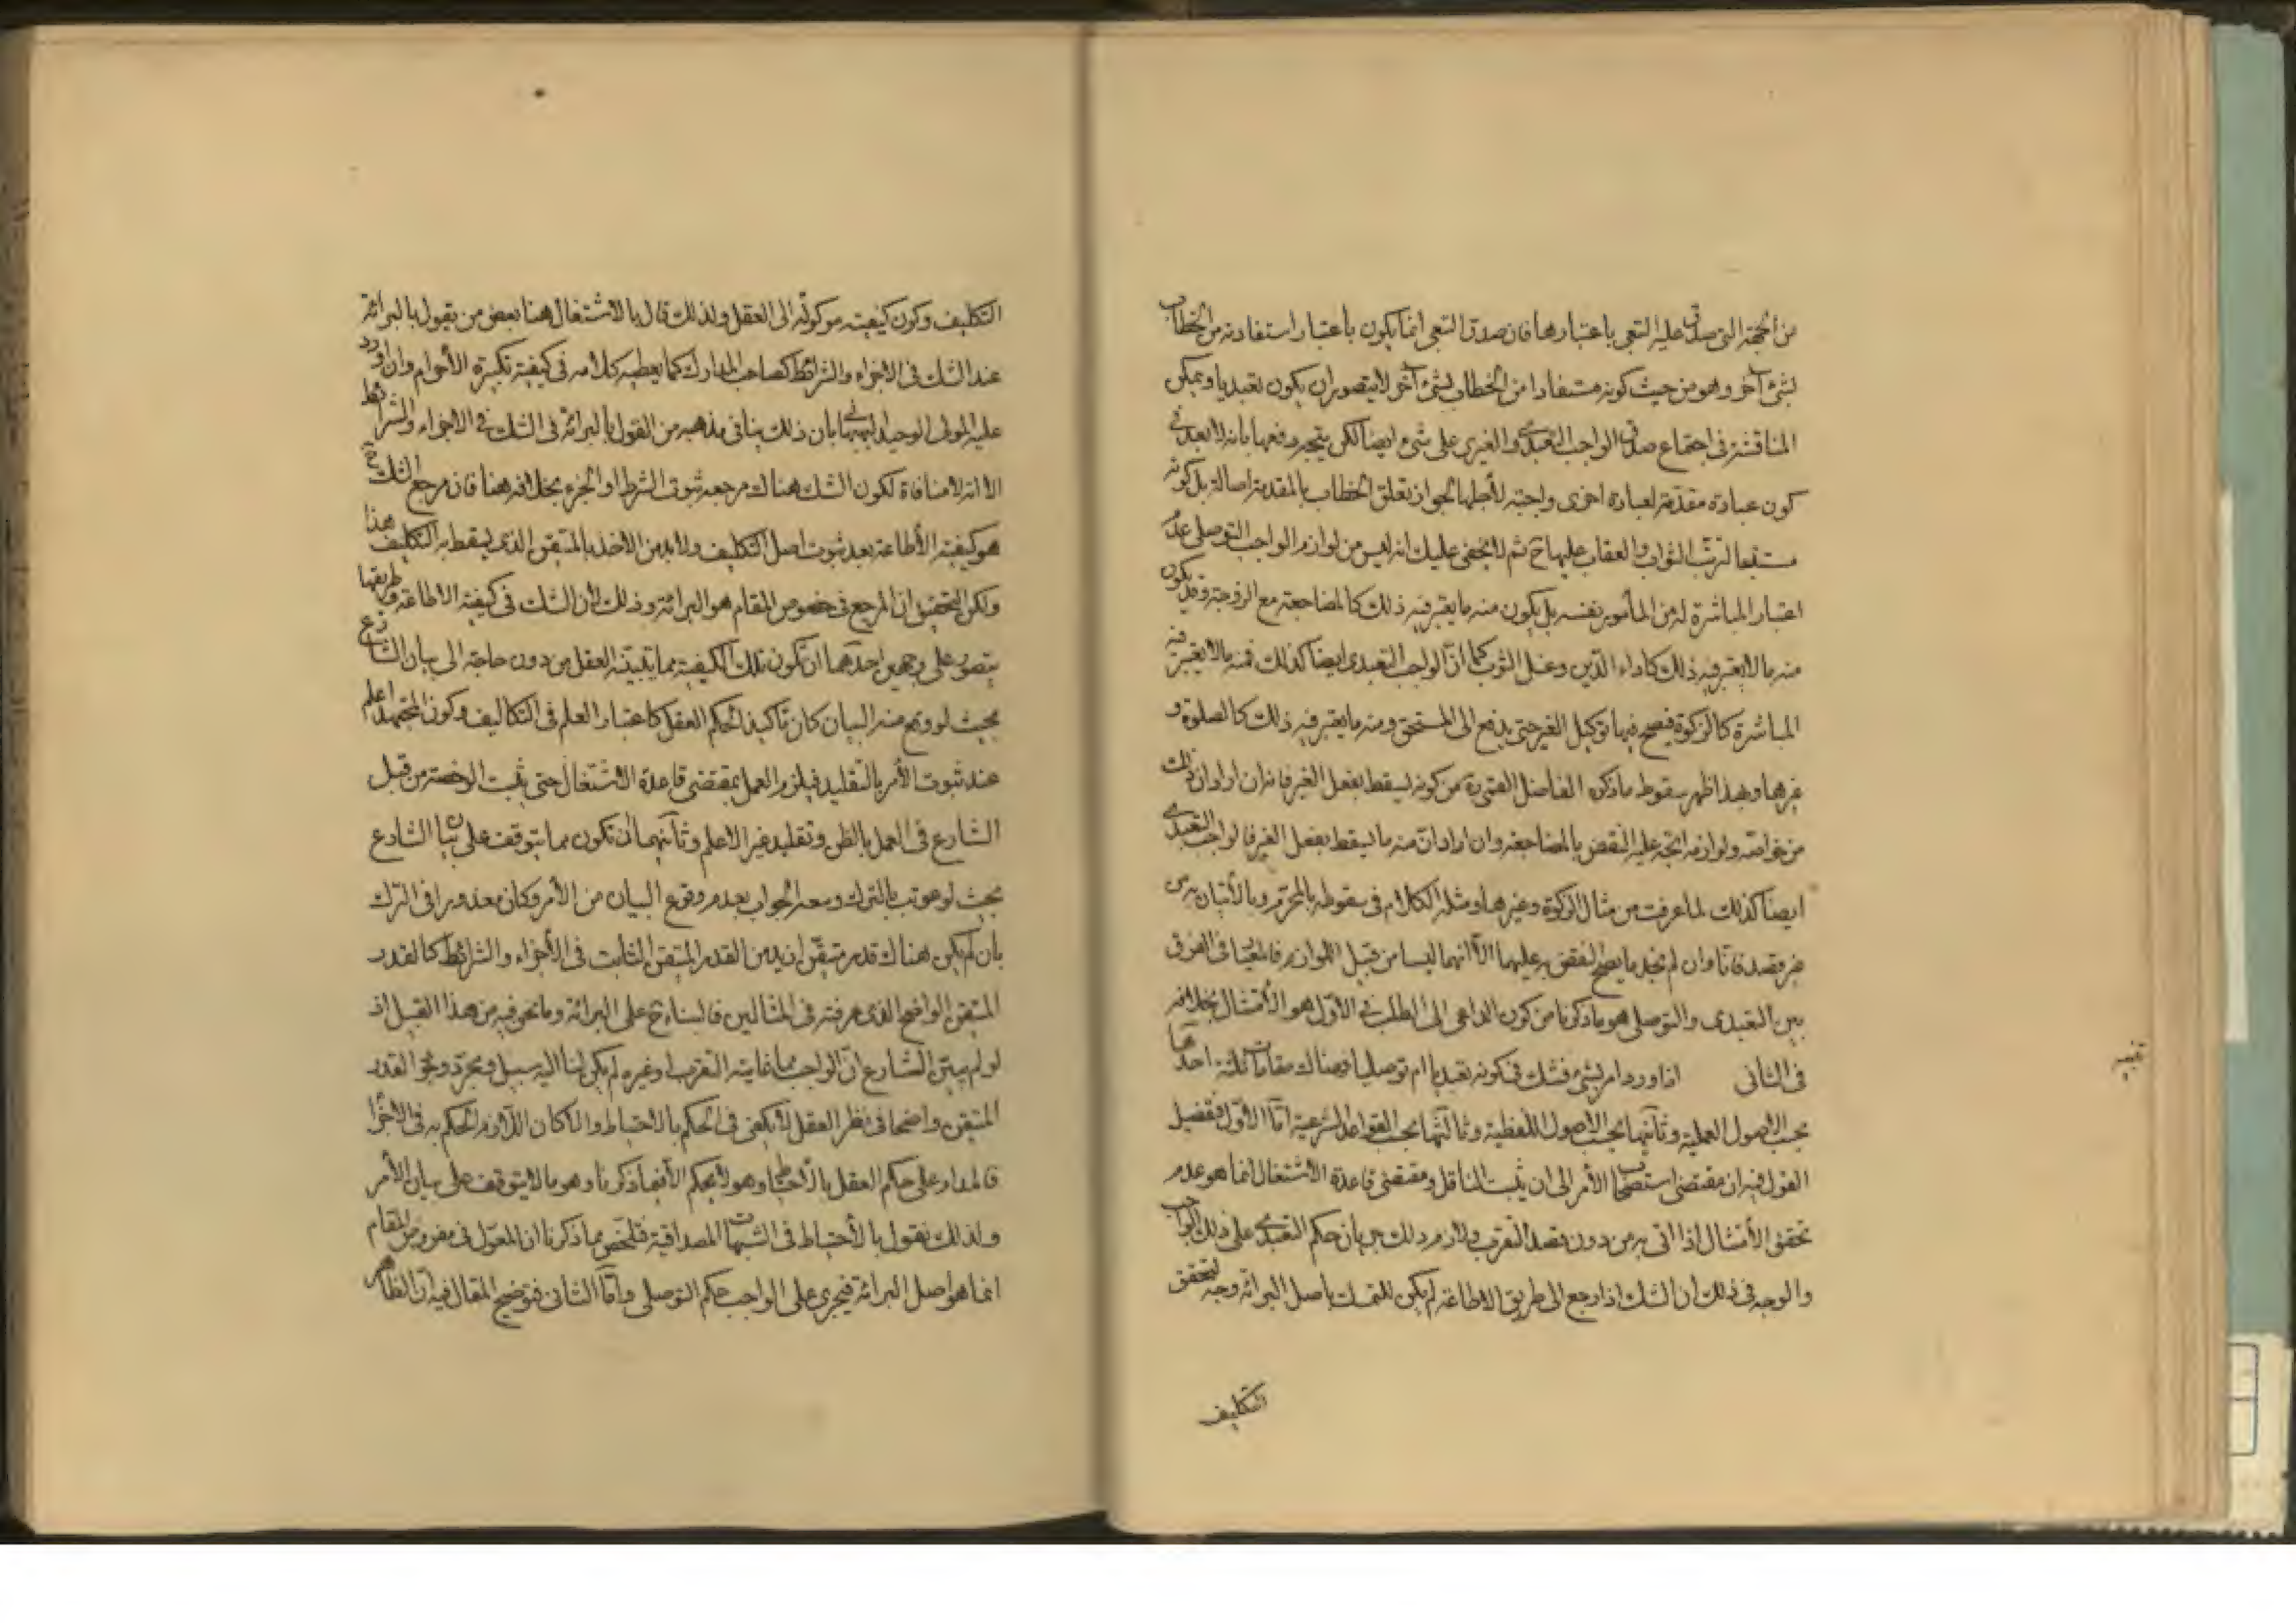 من الجهة التى صدق عليه التبعى باعتبارها فان صدق التبعى انما يكون باعتبار استفادته من الخطاب
لشئ آخر وهو من حيث كونه مستفادا من الخطاب لشئ آخر لا يتصور ان يكون تعبديا ويمكن
المناقشة فى اجتماع صدق الواجب التعبدى والغيرى على شئ ايضا لكن يتجه دفعها بانه لا بعد فى
كون عبادة مقدمة لعبادة اخرى واجبة لأجلها لجواز تعلق الخطاب بالمقدمة اصالة بل كونه
مستتبعا لترتب الثواب والعقاب عليها ح ثم لا يخفى عليك انه ليس من لوازم الواجب التوصلى عدم
اعتبار المباشرة له من المأمور بنفسه بل يكون منه ما يعتبر فيه ذلك كالمضاجعة مع الزوجة وقد يكون
منه ما لا يعتبر فيه ذلك كاداء الدين وغسل الثوب كما ان الواجب التعبدى ايضا كذلك فمنه ما لا يعتبر فيه
المباشرة كالزكوة فيصح فيها توكيل الغير حتى يدفع الى المستحق ومنه ما يعتبر فيه ذلك كالصلوة و
غيرها وبهذا ظهر سقوط ما ذكره الفاضل القمى ره من كونه يسقط بفعل الغير فانه ان اراد ان ذلك
من خواصه ولوازمه اتجه عليه النقض بالمضاجعة وان اراد ان منه ما يسقط بفعل الغير فالواجب التعبدى
ايضا كذلك لما عرفت من مثال الزكوة وغيرها ومثله الكلام فى سقوطه بالمحرم وبالأتيان به من
غير قصد فانا وان لم نجد ما يصح النقض به عليهما الا انهما ليسا من قبيل اللوازم فالمعيار فى الفرق
بين التعبدى والتوصلى هو ما ذكرنا من كون الداعى الى الطلب فى الاول هو الأمتثال بخلافه
فى الثانى اذا ورد امر بشئ فشك فى كونه تعبديا ام توصليا فهناك مقامات ثلثة احدها
بحسب الاصول العملية وثانيها بحسب الاصول اللفظية وثالثها بحسب القواعد الشرعية امّا الاوّل فتفصيل
القول فيه ان مقتضى استصحاب الأمر الى ان يثبت الناقل ومقتضى قاعدة الاشتغال انما هو عدم
تحقق الأمتثال اذا اتى به من دون قصد التقرب ولازم ذلك جريان حكم التعبدى على ذلك الواجب
والوجه فى ذلك ان الشك اذا رجع الى طريق الاطاعة لم يكن للتمسك باصل البرائة وجه لتحقق
التكليف
التكليف وكون كيفيته موكولة الى العقل ولذلك قال بالاشتغال هنا بعض من يقول بالبرائة
عند الشك فى الاجزاء والشرائط كصاحب المدارك كما يعطيه كلامه فى كيفية تكبيرة الأحرام وان اورد
عليه المولى الوحيد البهبهانى بان ذلك ينافى مذهبه من القول بالبرائة فى الشك فى الاجزاء والشرائط
الا انه لا منافاة لكون الشك هناك مرجعه ثبوت الشرط او الجزء بخلافه هنا فان مرجع الشك فيه
هو كيفية الأطاعة بعد ثبوت اصل التكليف ولا بد من الاخذ بالمتيقن الذى يسقط به التكليف هذا
ولكن التحقيق ان المرجع فى خصوص المقام هو البرائة وذلك لأن الشك فى كيفية الاطاعة وطريقها
يتصور على وجهين احدهما ان تكون تلك الكيفية مما يثبته العقل من دون حاجة الى بيان الشارع
بحيث لو وقع منه البيان كان تاكيدا لحكم العقل كاعتبار العلم فى التكاليف وكون المجتهد اعلم
عند ثبوت الأمر بالتقليد فيلزم العمل بمقتضى قاعدة الاشتغال حتى يثبت الرخصة من قبل
الشارع فى العمل بالظن وتقليد غير الاعلم وثانيهما ان تكون مما يتوقف على بيان الشارع
بحيث لو عوتب بالترك وسعه الجواب بعدم وقوع البيان من الأمر وكان معذورا فى الترك
بان لم يكن هناك قدر متيقن ازيد من القدر المتيقن الثابت فى الأجزاء والشرائط كالقدر
المتيقن الواضح الذى عرفته فى المثالين فالبناء ح على البرائة وما نحن فيه من هذا القبيل اذ
لو لم يبين الشارع ان الواجب مما غايته التقرب او غيره لم يكن لنا اليه سبيل ومجرد وجود القدر
المتيقن واضحا فى نظر العقل لا يكفى فى الحكم بالاحتياط والا كان اللازم الحكم به فى الأجزاء
فالمدار على حكم العقل بالأحتياط وهو لا يحكم الا فيما ذكرنا وهو ما لا يتوقف على بيان الأمر
ولذلك نقول بالأحتياط فى الشبهات المصداقية فتلخص مما ذكرنا ان المعول فى مفروض المقام
انما هو اصل البرائة فيجرى على الواجب حكم التوصلى وامّا الثانى فتوضيح المقال فيه ان الظاهر